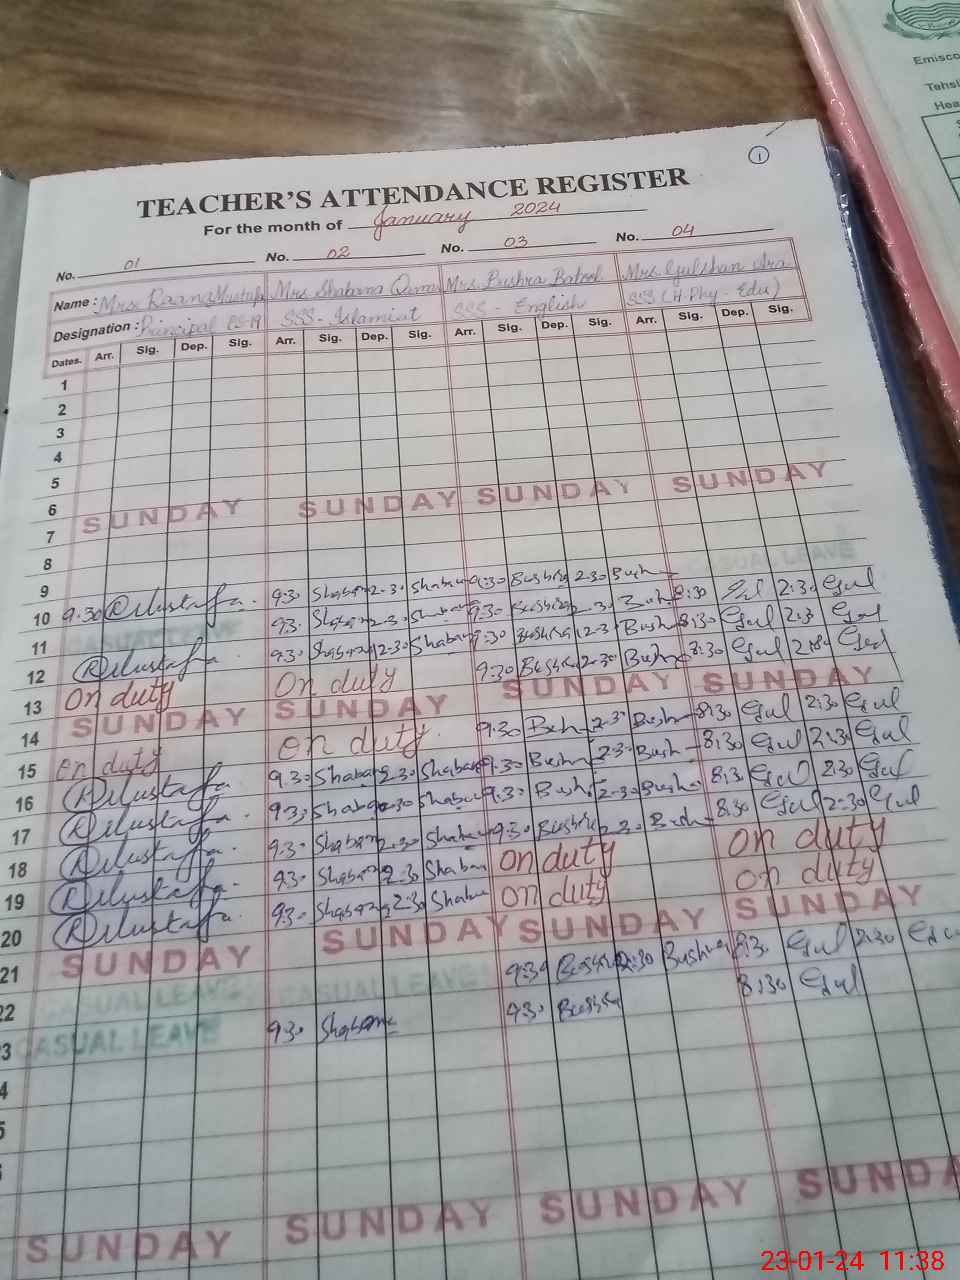 Emisco
Tehsi
Hea
1
TEACHER'S ATTENDANCE REGISTER
For the month of January 2024
No. 01 No. 02 No. 03 No. 04
Name : Mrs. Raana Mustafa Mrs Shabana Qamar Mrs. Bushra Batool Mrs. Gulshan Ara
Designation : Principal BS-19 SSS - Islamiat SSS - English SSS (H-Phy - Edu)
Dates. Arr. Sig. Dep. Sig. Arr. Sig. Dep. Sig. Arr. Sig. Dep. Sig. Arr. Sig. Dep. Sig.
1
2
3
4
5
6
SUNDAY SUNDAY SUNDAY SUNDAY
7
8
CASUAL LEAVE
9 9:30 Shabana 2:30 Shabana 9:30 Bushra 2:30 Bush 8:30 Gul 2:30 Gul
10 9:30 RMustafa 9:30 Shabana 2:30 Shabana 9:30 Bushra 2:30 Bush 8:30 Gul 2:30 Gul
11 CASUAL LEAVE 9:30 Shabana 2:30 Shabana 9:30 Bushra 2:30 Bush 8:30 Gul Gul
12 RMustafa
13 On duty On duty SUNDAY SUNDAY
14 SUNDAY SUNDAY 9:30 Bush 2:30 Bush 8:30 Gul 2:30 Gul
15 on duty on duty 9:30 Bush 2:30 Bush 8:30 Gul 2:30 Gul
16 RMustafa 9:30 Shabana 2:30 Shabana 9:30 Bush 2:30 Bush 8:30 Gul 2:30 Gul
17 RMustafa 9:30 Shabana 2:30 Shabana 9:30 Bushra 2:30 Bush 8:30 Gul 2:30 Gul
18 RMustafa 9:30 Shabana 2:30 Shabana on duty on duty
19 RMustafa 9:30 Shabana 2:30 Shaban on duty on duty
20 RMustafa 9:30 Shabana 2:30 Shaba SUNDAY SUNDAY
21 SUNDAY SUNDAY 9:30 Bushra 2:30 Bushra 8:30 Gul 2:30 Gul
22 CASUAL LEAVE CASUAL LEAVE 9:30 Bushra 8:30 Gul
3 CASUAL LEAVE 9:30 Shabana
4
5
SUNDAY SUNDAY SUNDAY SUNDA
23-01-24 11:38